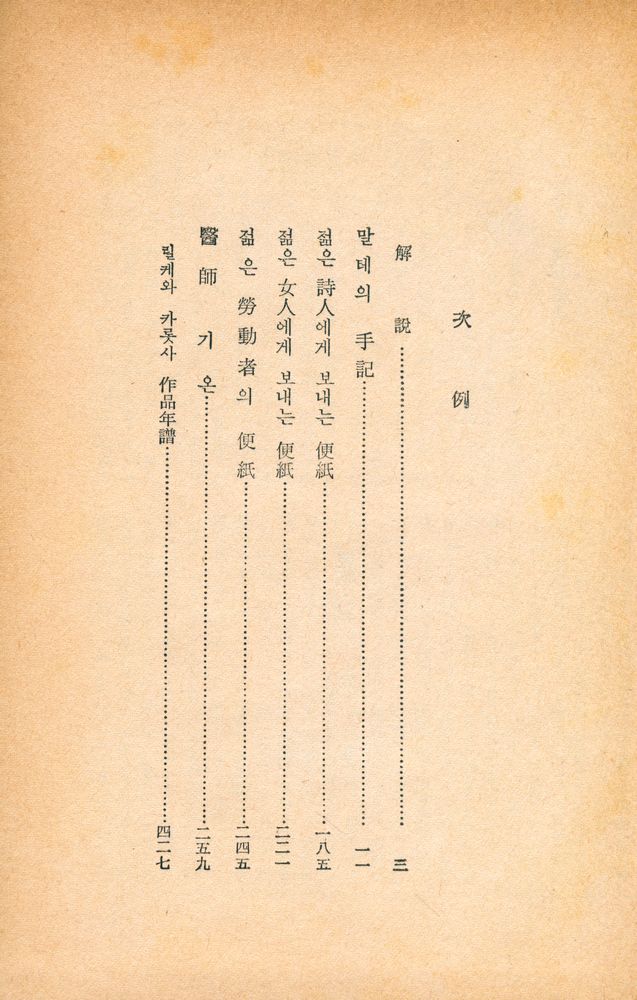 次例
解說 三
말테의 手記 一一
젊은 詩人에게 보내는 便紙 一八五
젊은 女人에게 보내는 便紙 二二一
젊은 勞動者의 便紙 二四五
醫師 기온 二五九
릴케와 카롯사 作品年譜 四二七